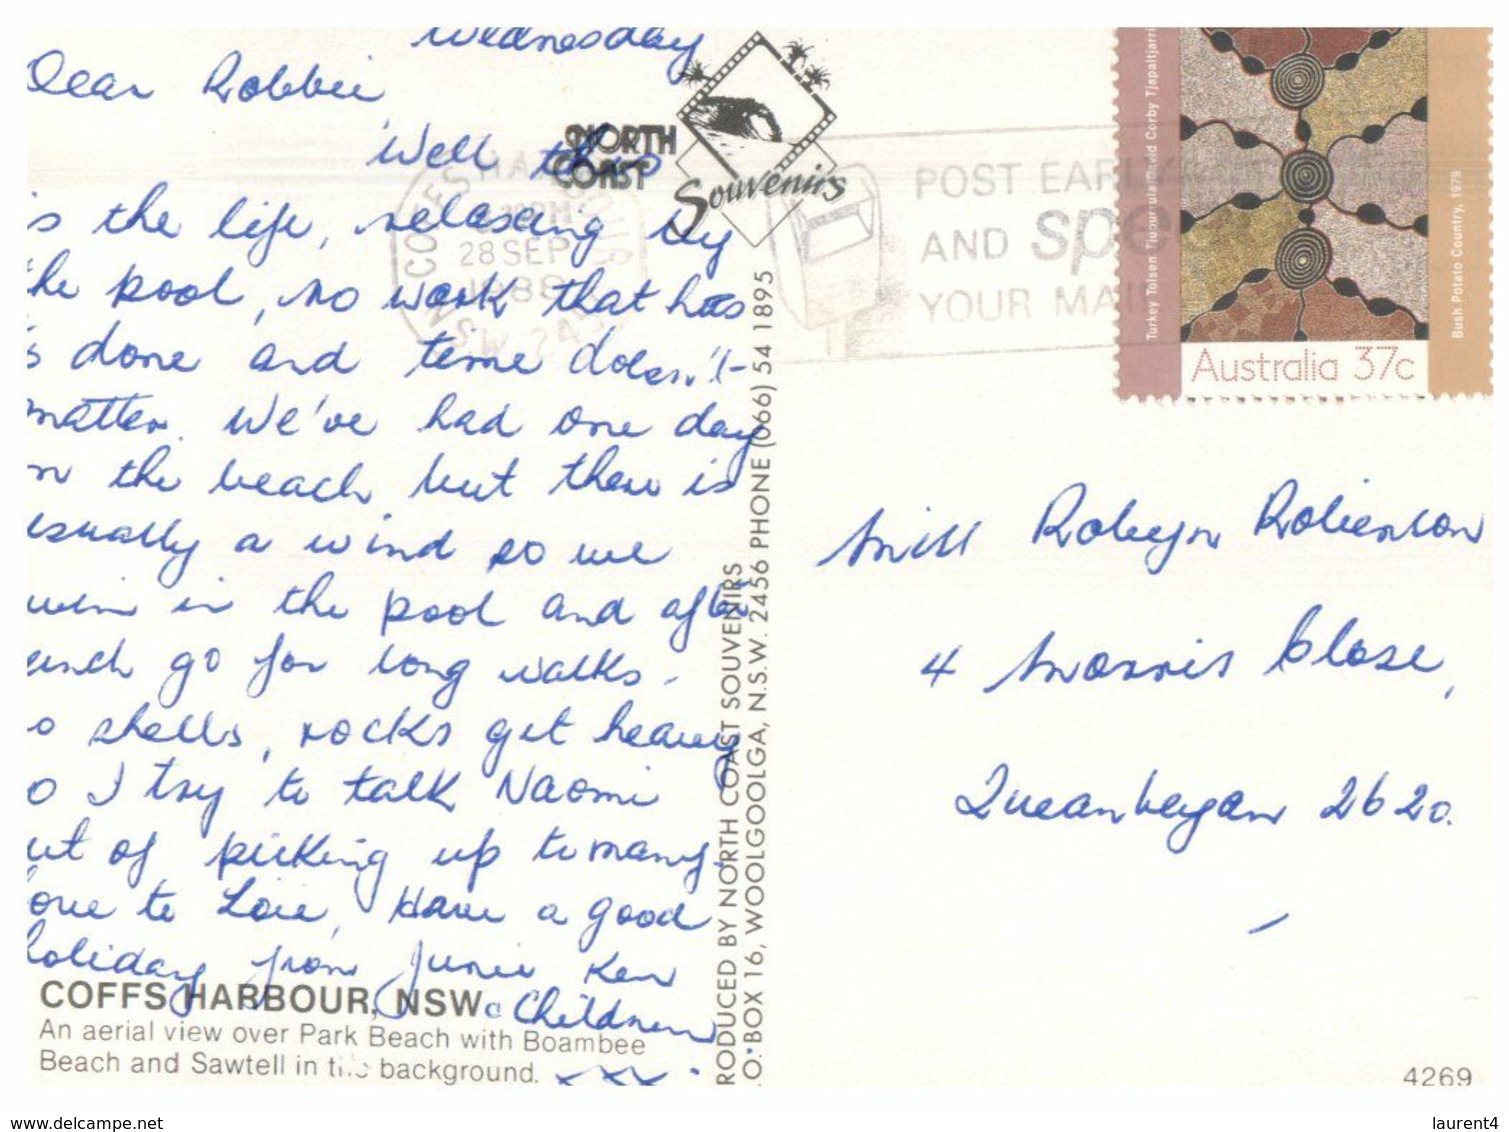 Wednesday
Dear Robbie
Well this
is the life, relaxing by
the pool, no work that has
s done and time doesn't
matter. We've had one day
on the beach but there is
usually a wind so we
swim in the pool and after
lunch go for long walks.
o shells, rocks get heavy
so I try to talk Naomi
out of picking up to many.
Love to Lou, Have a good
holiday from Junie Ken
& Children
xxx.
COFFS HARBOUR, NSW
An aerial view over Park Beach with Boambee
Beach and Sawtell in the background.
NORTH
COAST
Souvenirs
RODUCED BY NORTH COAST SOUVENIRS
.O. BOX 16, WOOLGOOLGA, N.S.W. 2456 PHONE (066) 54 1895
COFFS HARBOUR
PM
28 SEP
1988
N.S.W. 245
POST EARLY
AND spe
YOUR MAI
Turkey Tolsen Tjupurrula David Corby Tjapaltjarri
Bush Potato Country, 1979
Australia 37c
Miss Robyn Robertson
4 Morris Close,
Queanbeyan 2620.
4269
www.delcampe.net
laurent4